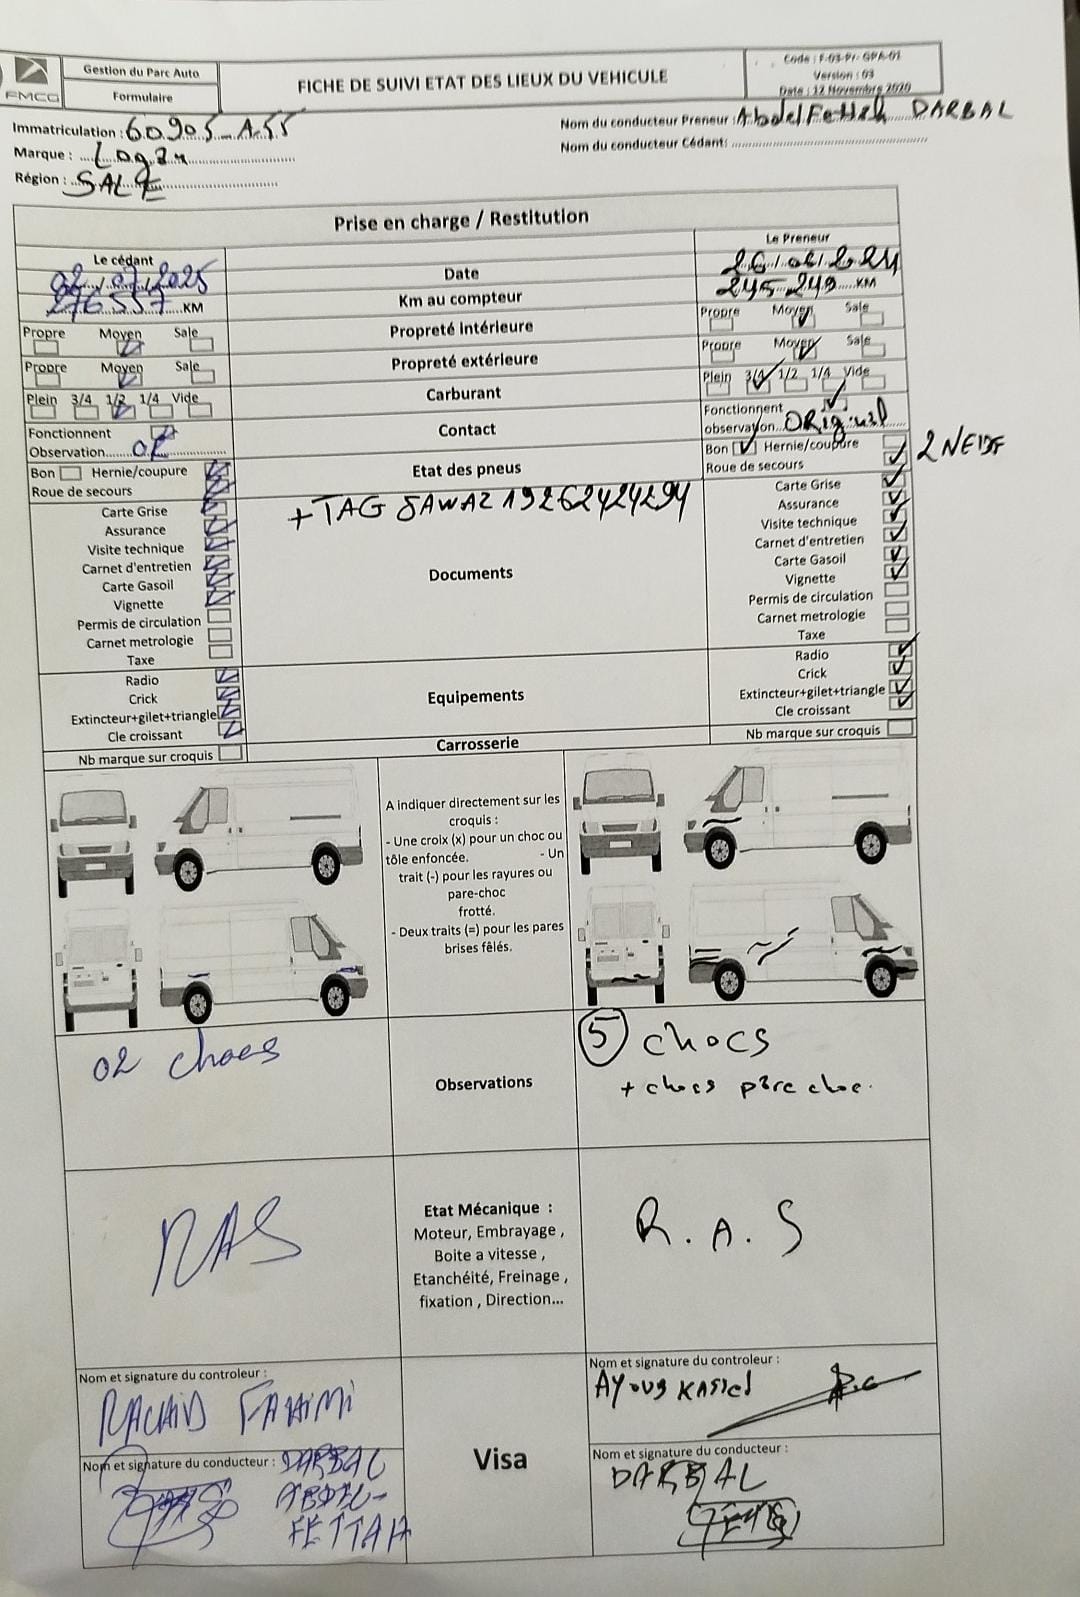 FMCG
Gestion du Parc Auto
Formulaire
FICHE DE SUIVI ETAT DES LIEUX DU VEHICULE
Code : F-03-Pr-GPA-01
Version : 03
Date : 12 Novembre 2020
Immatriculation : 60905-A-55
Marque : Logan
Région : SALE
Nom du conducteur Preneur : Abdel Fettah DARBAL
Nom du conducteur Cédant:
Prise en charge / Restitution
Le cédant
Le Preneur
02/07/2025
Date
276 557 KM
Km au compteur
245.249 KM
Propre Moyen Sale
Propreté intérieure
Propre Moyen Sale
Propre Moyen Sale
Propreté extérieure
Propre Moyen Sale
Plein 3/4 1/2 1/4 Vide
Carburant
Plein 3/4 1/2 1/4 Vide
Fonctionnent
Observation
Contact
Fonctionnent
observation Original
Bon Hernie/coupure
Roue de secours
Etat des pneus
Bon Hernie/coupure
Roue de secours
2 NEUF
+TAG JAWAZ 19262424294
Carte Grise
Assurance
Visite technique
Carnet d'entretien
Carte Gasoil
Vignette
Permis de circulation
Carnet metrologie
Taxe
Documents
Carte Grise
Assurance
Visite technique
Carnet d'entretien
Carte Gasoil
Vignette
Permis de circulation
Carnet metrologie
Taxe
Radio
Crick
Extincteur+gilet+triangle
Cle croissant
Equipements
Radio
Crick
Extincteur+gilet+triangle
Cle croissant
Nb marque sur croquis
Carrosserie
Nb marque sur croquis
A indiquer directement sur les
croquis :
- Une croix (x) pour un choc ou
tôle enfoncée. - Un
trait (-) pour les rayures ou
pare-choc
frotté.
- Deux traits (=) pour les pares
brises fêlés.
02 chocs
Observations
5 chocs
+ chocs pare choc.
RAS
Etat Mécanique :
Moteur, Embrayage ,
Boite a vitesse ,
Etanchéité, Freinage ,
fixation , Direction...
R.A.S
Nom et signature du controleur :
RACHID FAHIMI
Nom et signature du controleur :
Nom et signature du conducteur : DARBAL
ABDEL-
FETTAH
Visa
Nom et signature du conducteur :
DARBAL